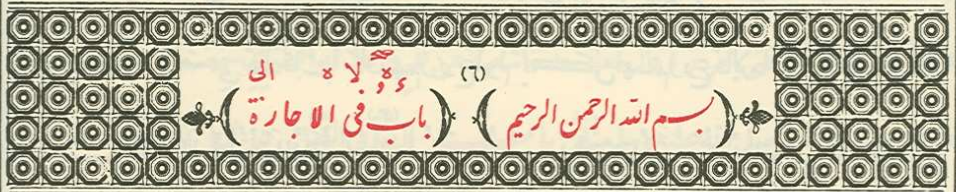 (٦)
﴿بسم الله الرحمن الرحيم﴾ ﴿باب فى الاجارة الى﴾